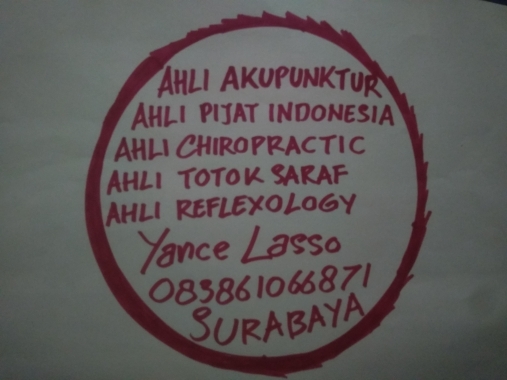 AHLI AKUPUNKTUR
AHLI PIJAT INDONESIA
AHLI CHIROPRACTIC
AHLI TOTOK SARAF
AHLI REFLEXOLOGY
Yance Lasso
083861066871
SURABAYA